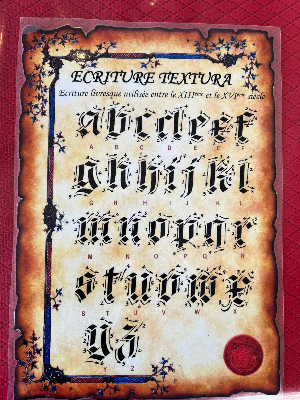 ECRITURE TEXTURA
Ecriture livresque utilisée entre le XIIIème et le XVIème siècle
a b c d e f
A B C D E F
g h i j k l
G H I J K L
m n o p q r
M N O P Q R
s t u v w x
S T U V W X
y z
Y Z